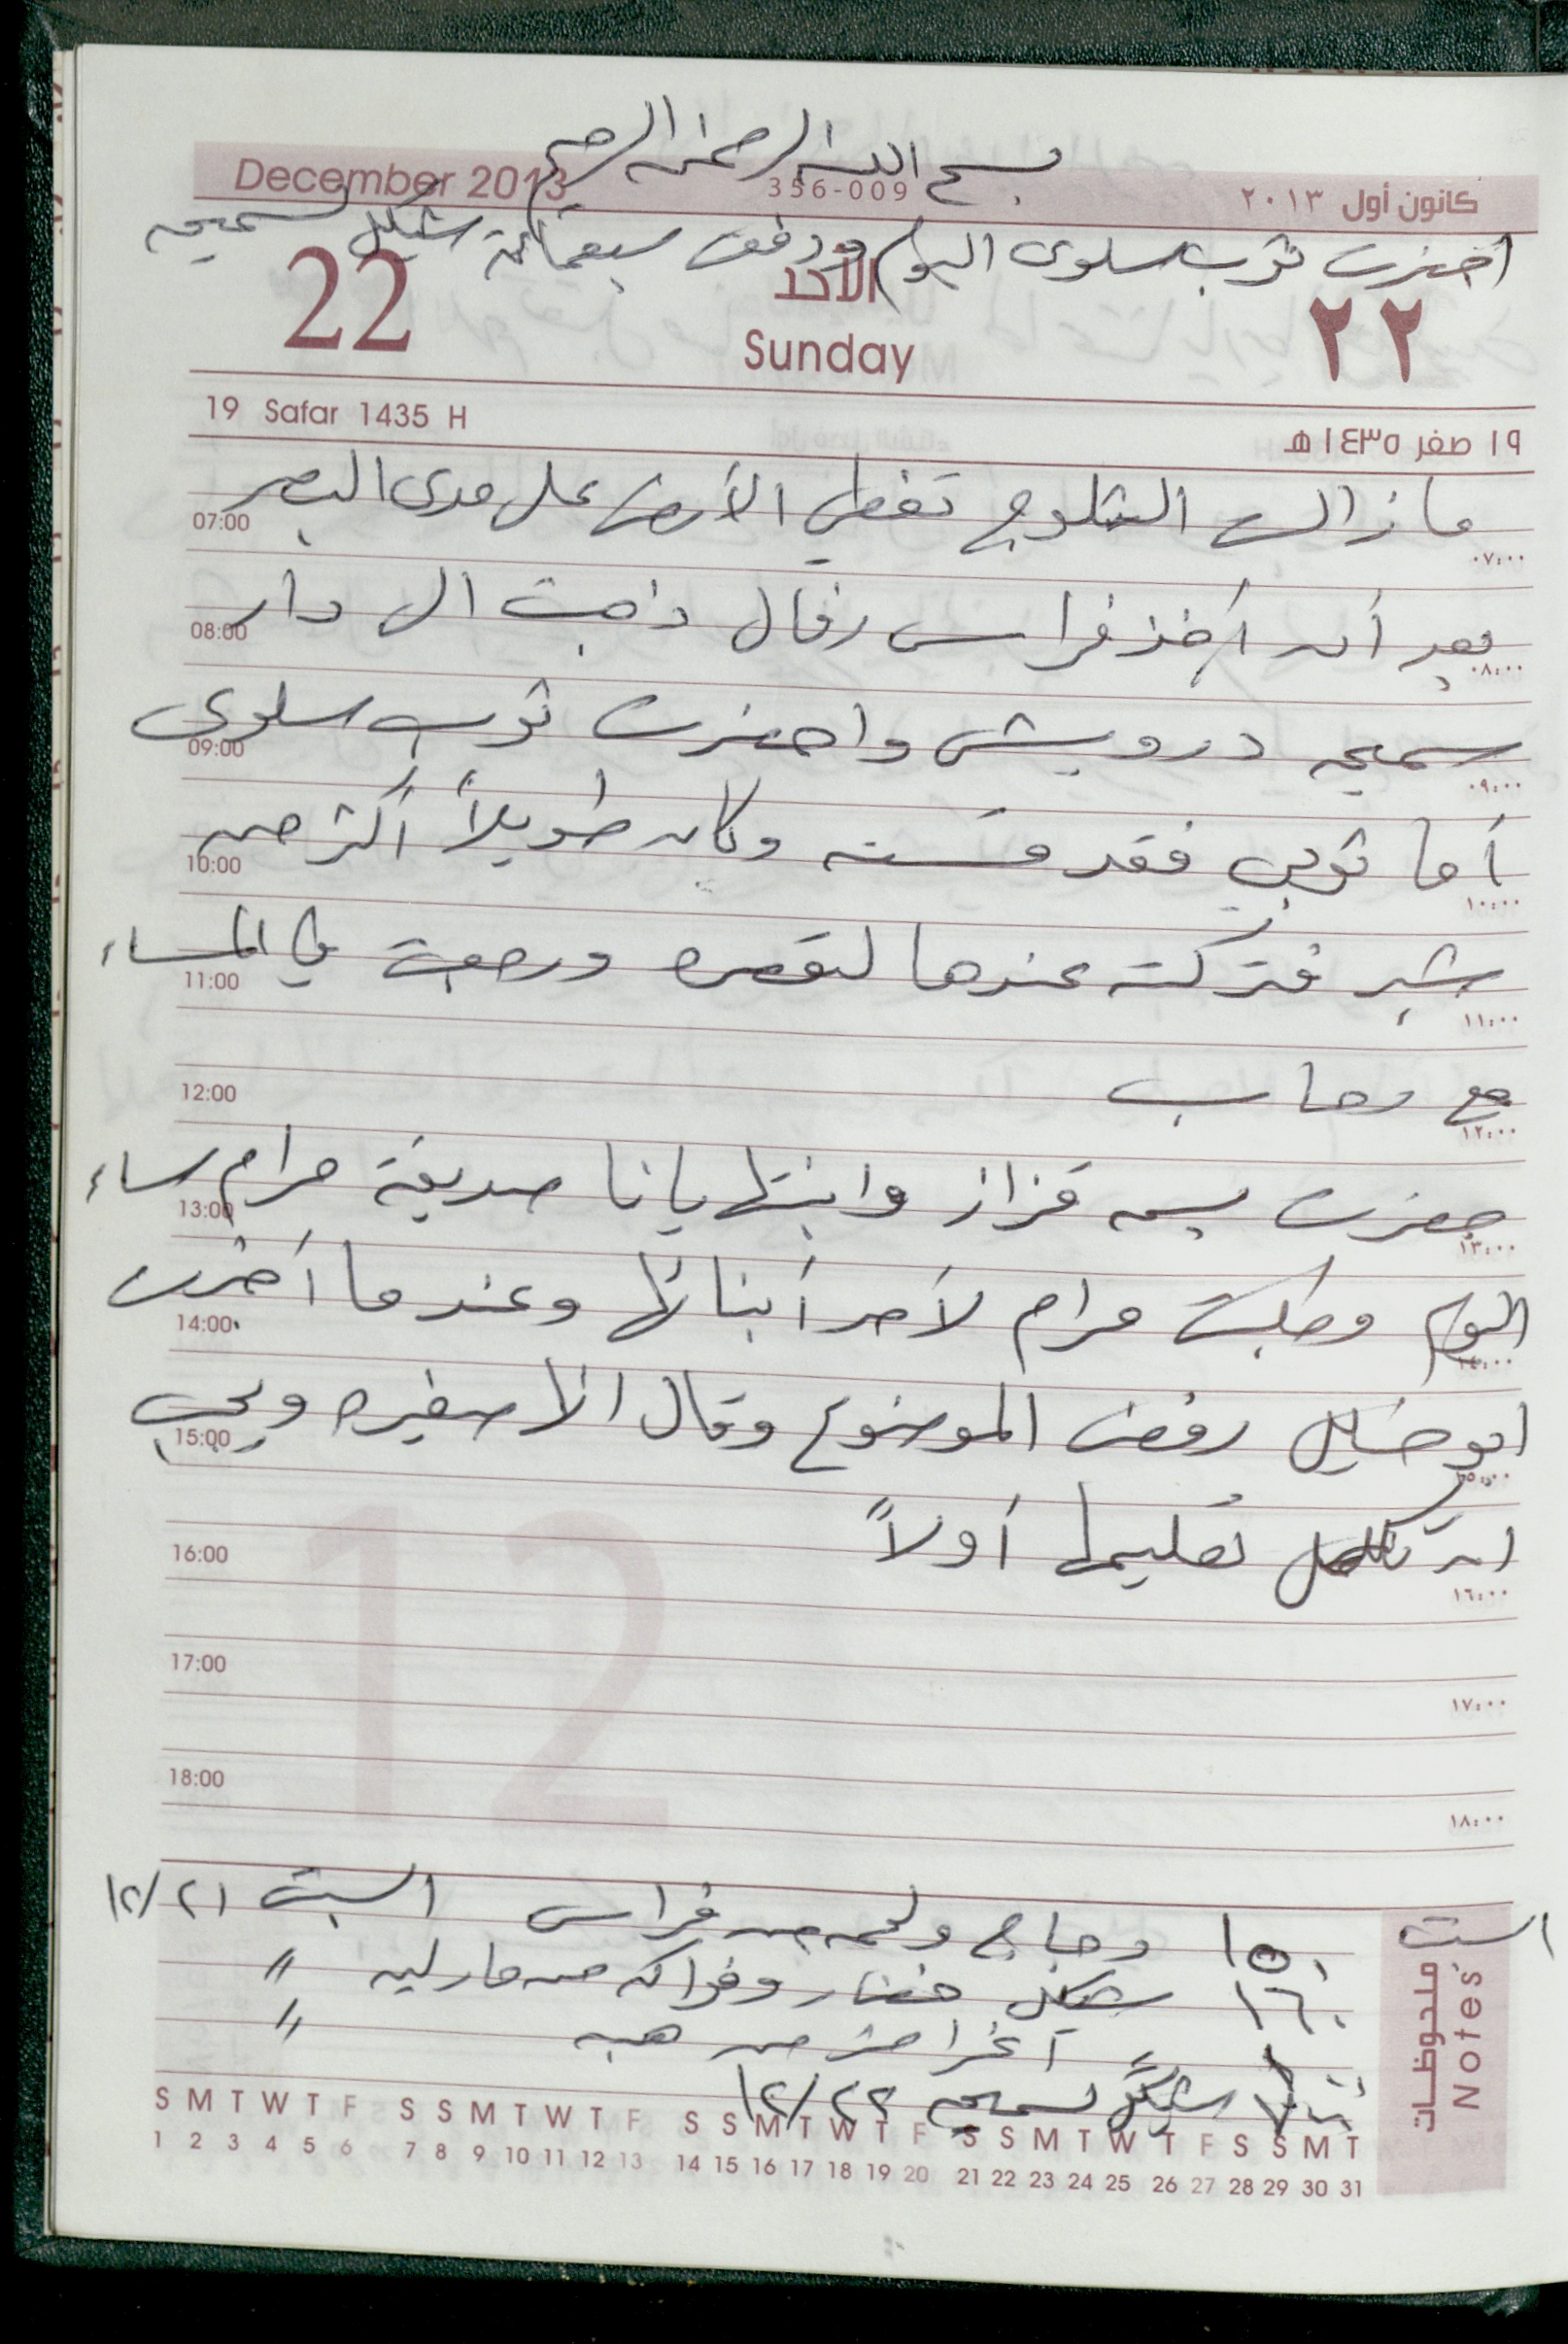 بسم الله الرحمن الرحيم
December 2013 356-009 كانون أول ٢٠١٣
احضرت ثوب سلوى اليوم ودفعت سبعمائة شيكل لسميحه
22 الأحد ٢٢
Sunday
19 Safar 1435 H ١٩ صفر ١٤٣٥ هـ
ما زالت الثلوج تغطي الأرض على مدى البصر
07:00 ٠٧:٠٠
بعد أن أخذ فراس رفال ذهبت الى دار
08:00 ٠٨:٠٠
سميحه درويش واحضرت ثوب سلوى
09:00 ٠٩:٠٠
أما ثوبي فقد قسته وكان طويلاً أكثر من
10:00 ١٠:٠٠
شبر فتركته عندها لتقصره ورجعت في المساء
11:00 ١١:٠٠
مع رحاب
12:00 ١٢:٠٠
حضرت بسمه قزاز وابنتها يانا صديقة مرام مساء
13:00 ١٣:٠٠
اليوم وطلبت مرام لأحد أبنائها وعندما أخبرت
14:00 ١٤:٠٠
ابو خليل رفض الموضوع وقال انها صغيره ويجب
15:00 ١٥:٠٠
ان تكمل تعليمها أولاً
16:00 ١٦:٠٠
17:00 ١٧:٠٠
18:00 ١٨:٠٠
12
السبت ١٥٠ دجاج ولحمه من فراس السبت ١٢/٢١
١٦٠ شيكل خضار وفواكه من مارلين "
اغراض من هبه "
٧٠٠ شيكل لسميحه ١٢/٢٢
ملحوظات
Notes
S M T W T F S S M T W T F S S M T W T F S S M T W T F S S M T
1 2 3 4 5 6 7 8 9 10 11 12 13 14 15 16 17 18 19 20 21 22 23 24 25 26 27 28 29 30 31